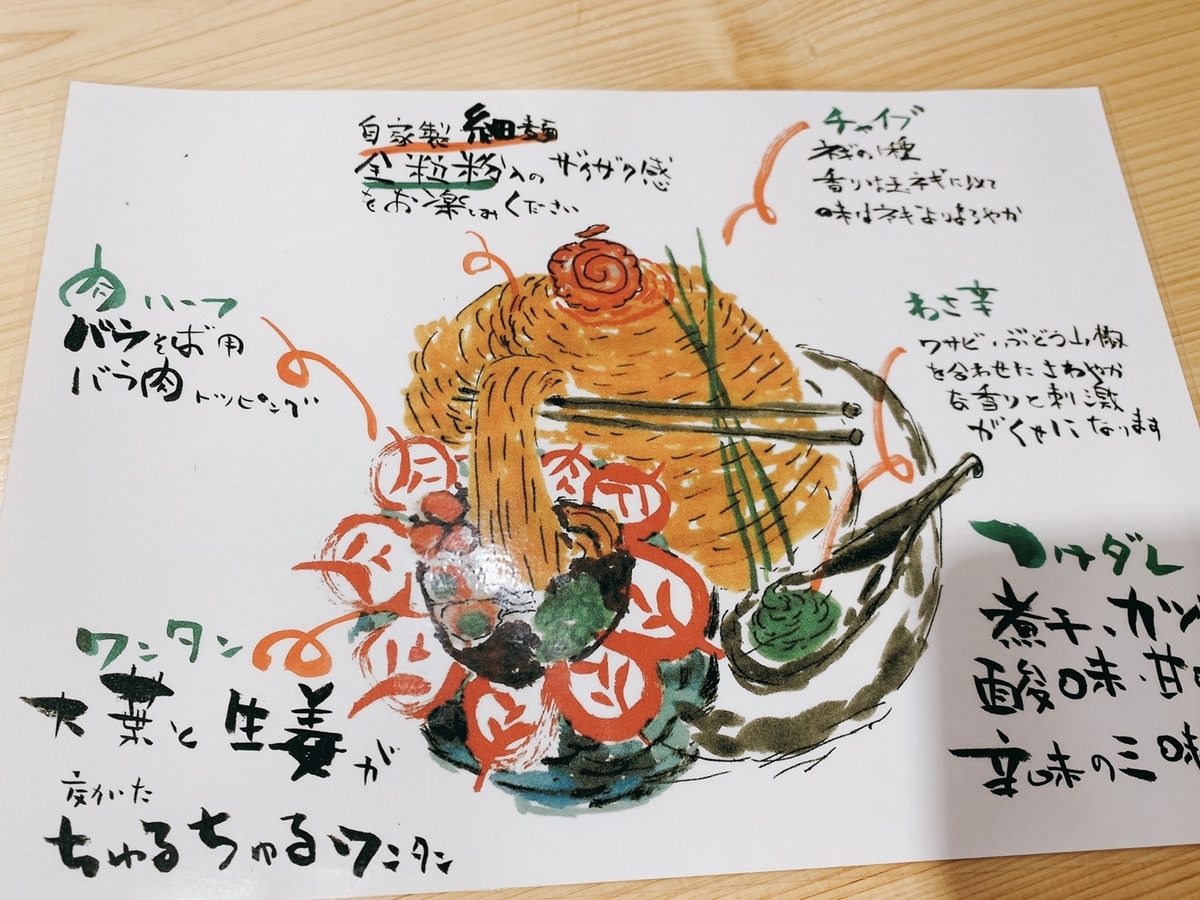 自家製 細麺
全粒粉入の ザクザク感
をお楽しみください
チャイブ
ネギの1種
香りは玉ネギに似て
味はネギよりまろやか
肉ハーフ
バラそば用
バラ肉トッピング
わさ辛
ワサビ、ぶどう山椒
を合わせた さわやか
な香りと刺激
がくせになります
ワンタン
大葉と生姜が
効いた
ちゅるちゅるワンタン
つけダレ
煮干、カツ
酸味・甘
辛味の三味